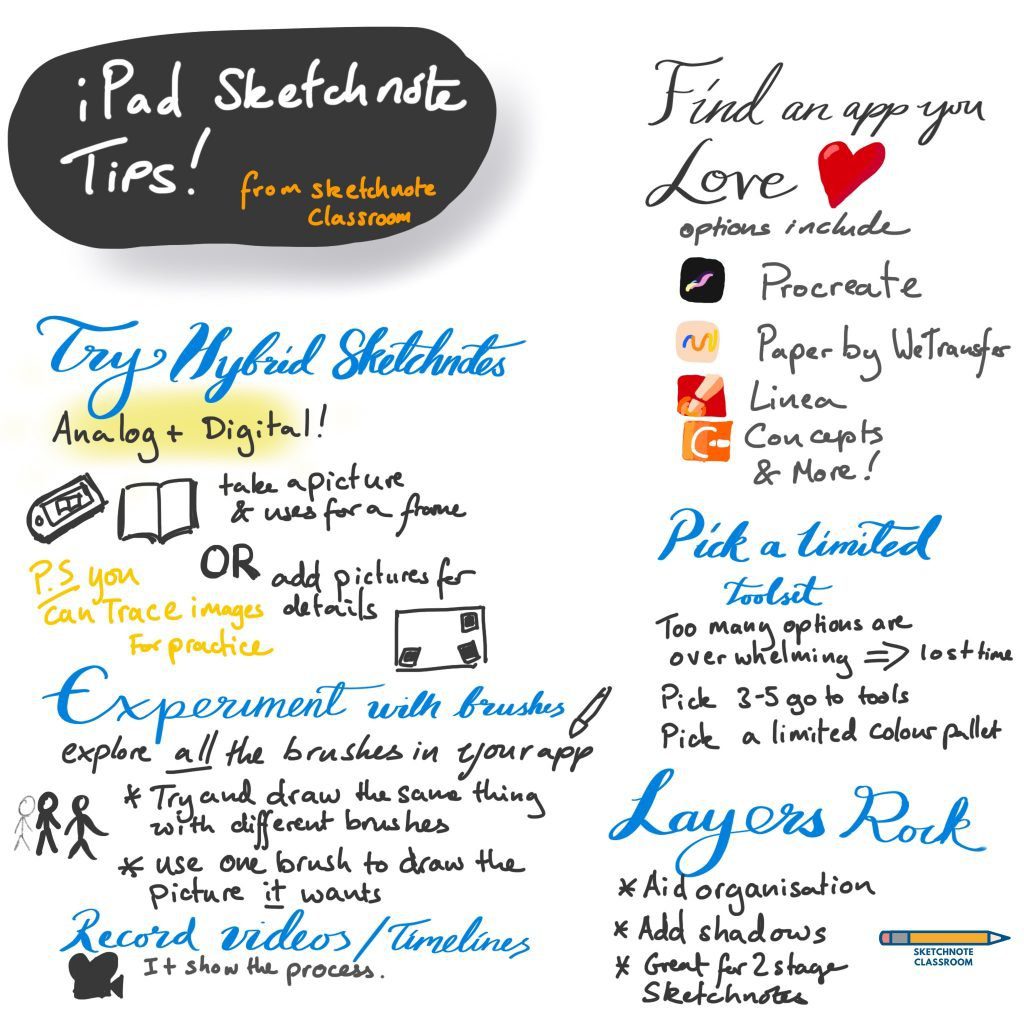 iPad Sketchnote
Tips!
from sketchnote
Classroom
Try Hybrid Sketchnotes
Analog + Digital!
take a picture
& uses for a frame
OR
add pictures for
details
P.S you
can Trace images
For practice
Experiment with brushes
explore all the brushes in your app
* Try and draw the same thing
with different brushes
* use one brush to draw the
picture it wants
Record videos / Timelines
It show the process.
Find an app you
Love
options include
Procreate
Paper by WeTransfer
Linea
Concepts
& More!
Pick a limited
toolset
Too many options are
over whelming => lost time
Pick 3-5 go to tools
Pick a limited colour pallet
Layers Rock
* Aid organisation
* Add shadows
* Great for 2 stage
Sketchnotes
SKETCHNOTE
CLASSROOM